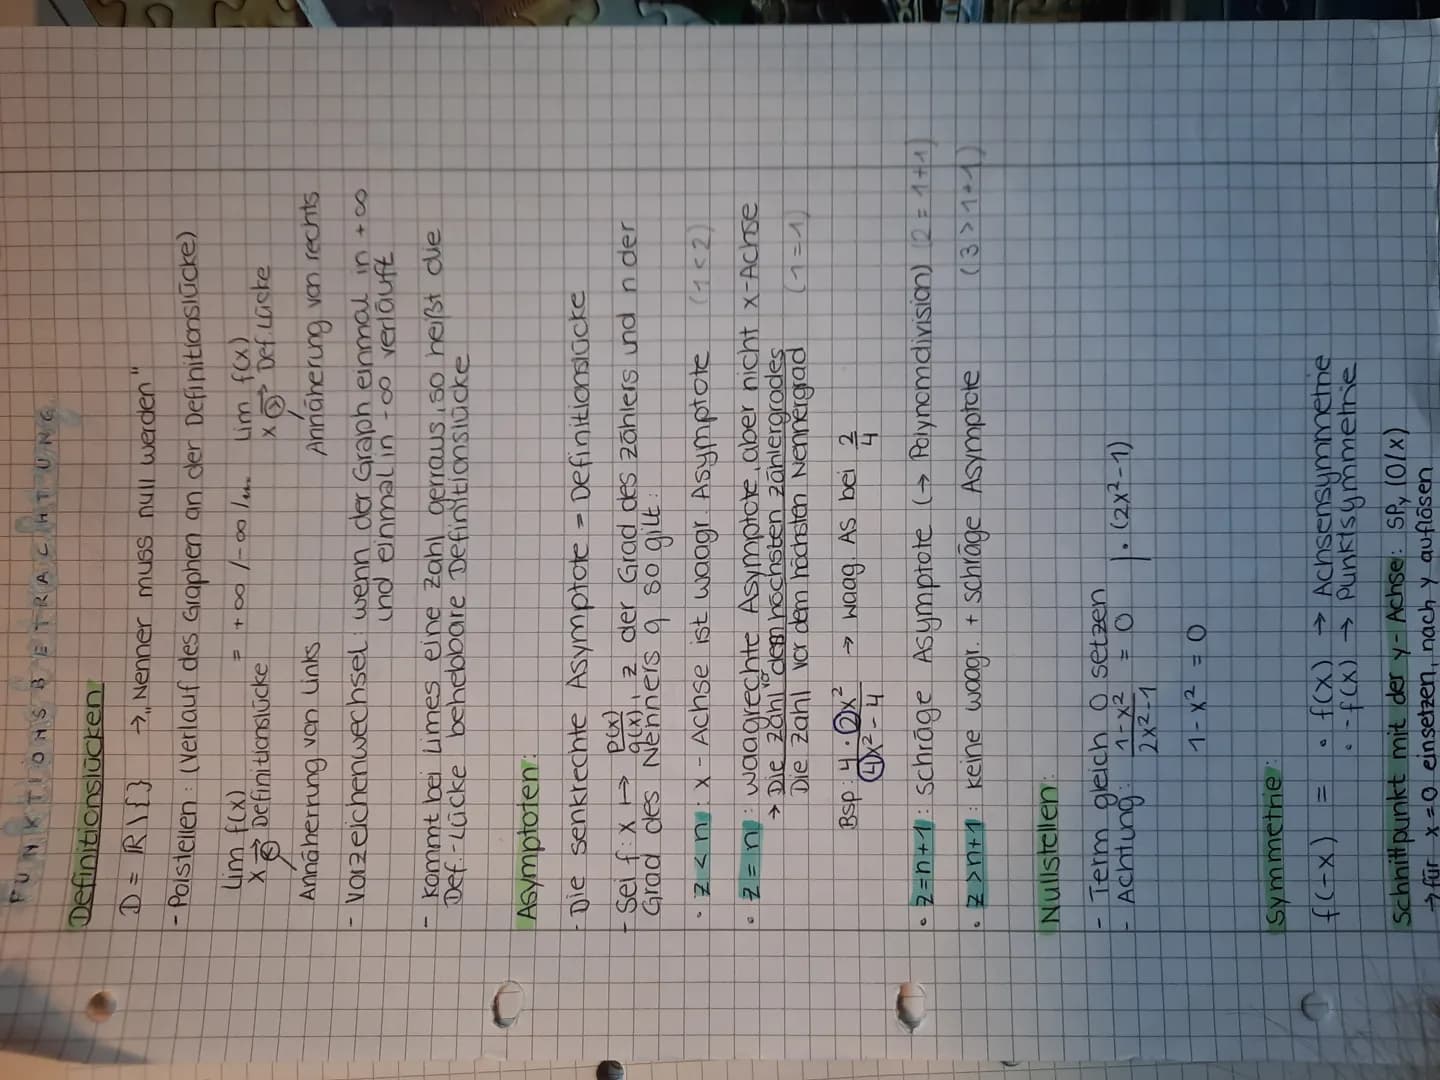 FUNKTIONSBETRACHTUNG
Definitionslücken
D = ℝ \ { } → „Nenner muss null werden"
- Polstellen: (Verlauf des Graphen an der Definitionslücke)
lim f(x) = +∞ / -∞ / lim f(x)
x → Definitionslücke x → Def.lücke
Annäherung von links Annäherung von rechts
- Vorzeichenwechsel: wenn der Graph einmal in +∞
und einmal in -∞ verläuft
- Kommt bei Limes eine Zahl gerraus, so heißt die
Def.-Lücke behebbare Definitionslücke
Asymptoten:
- Die senkrechte Asymptote = Definitionslücke
- Sei f: x ↦ p(x)/q(x), z der Grad des Zählers und n der
Grad des Nenners q so gilt:
• z < n: x-Achse ist waagr. Asymptote (1 < 2)
• z = n: waagrechte Asymptote, aber nicht x-Achse
→ Die Zahl vor dem höchsten Zählergrades (1 = 1)
Die Zahl vor dem höchsten Nennergrad
Bsp: 4 · 2x² / 4x² - 4 → waag. AS bei 2/4
• z = n+1: schräge Asymptote (→ Polynomdivision) (2 = 1+1)
• z > n+1: keine waagr. + schräge Asymptote (3 > 1+1)
Nullstellen:
- Term gleich 0 setzen
- Achtung: 1-x² / 2x²-1 = 0 | · (2x²-1)
1-x² = 0
Symmetrie:
f(-x) = • f(x) → Achsensymmetrie
• -f(x) → Punktsymmetrie
Schnittpunkt mit der y-Achse: SPy (0/x)
→ für x = 0 einsetzen, nach y auflösen